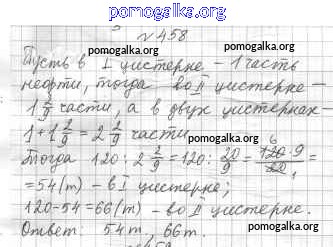 pomogalka.org
№458
pomogalka.org pomogalka.org
Пусть в I цистерне - 1 часть
нефти, тогда во II цистерне -
1 2/9 части, а в двух цистернах -
1 + 1 2/9 = 2 2/9 части.
pomogalka.org
Тогда 120 : 2 2/9 = 120 : 20/9 = 120·9/20 =
6
1
= 54 (т) - в I цистерне;
pomogalka.org pomogalka.org
120-54=66 (т) - во II цистерне.
Ответ: 54 т, 66 т.
pomogalka.org